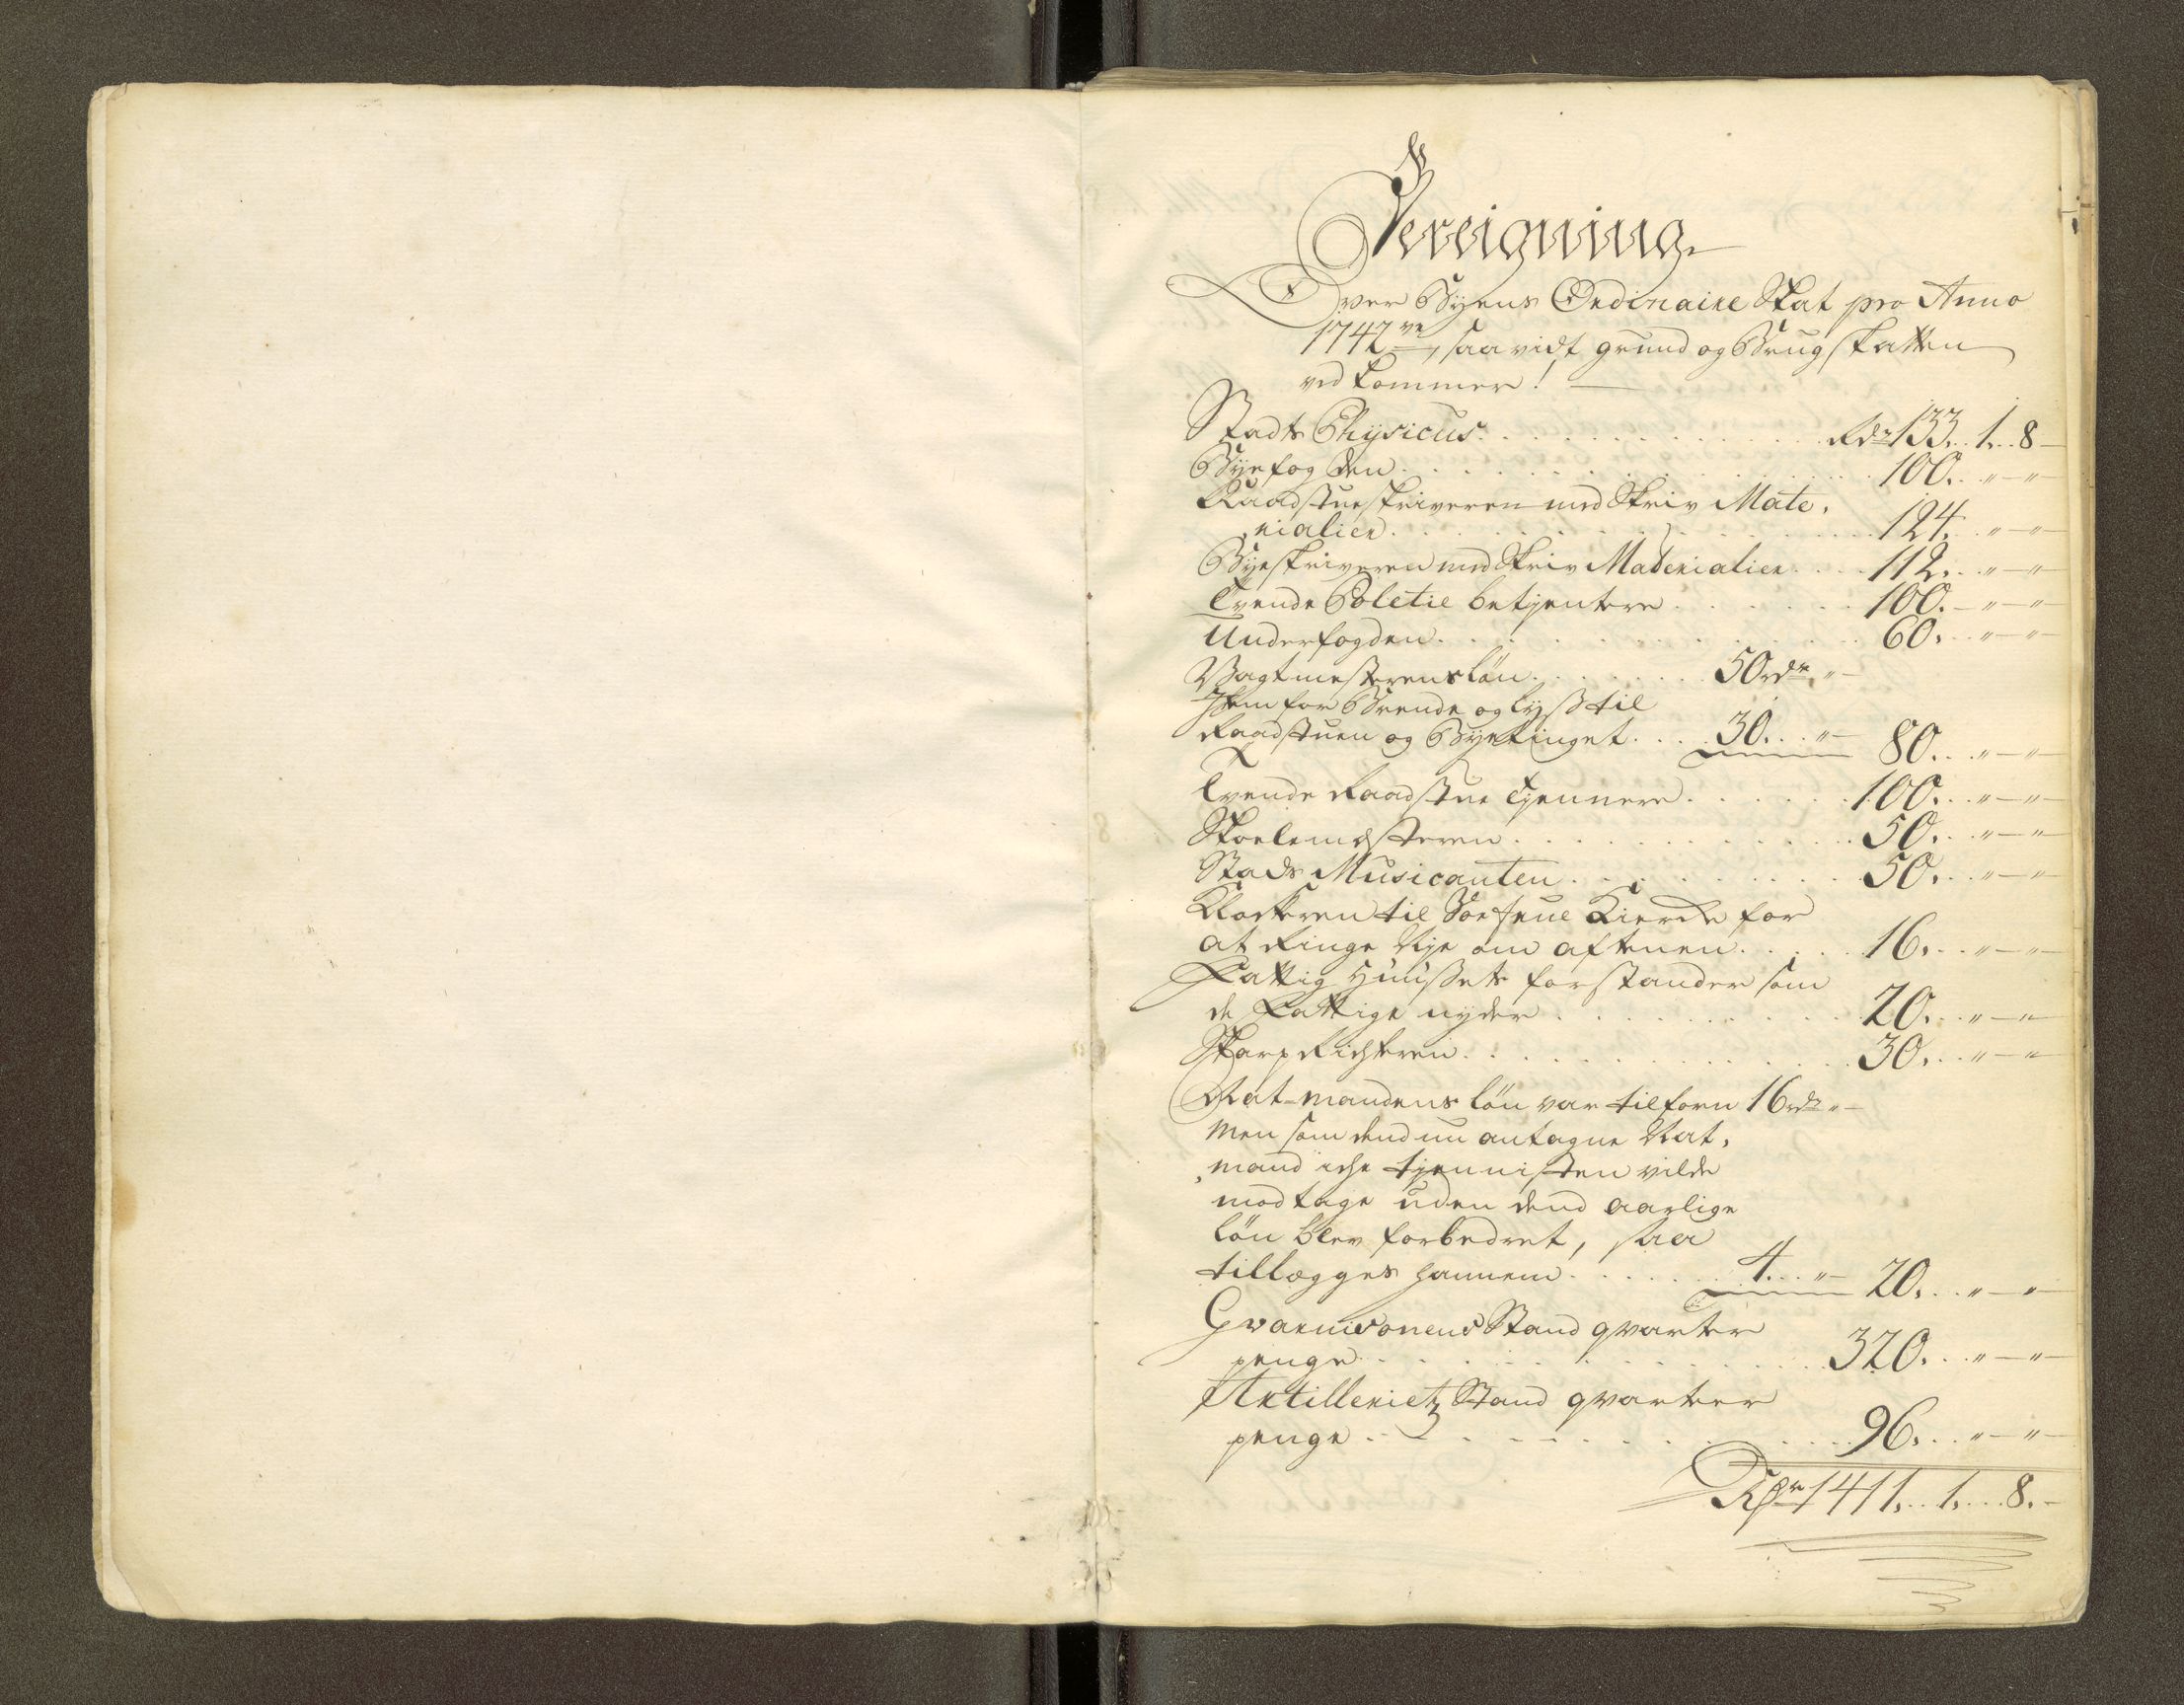 Bereigning
Over Byens Ordinaire Skat pro Anno
1742 ve, saa vidt grund og Brug skatten
ved kommer!
Stadts Physicus . . . Rdr 133. 1. 8
Byefogden . . . 100. " — "
Raadstueskriveren med Skriv Mate,
rialier . . . 124. " — "
Byeskriveren med Skriv Materialier . . . 112. " — "
Tvende Poletie betjentere . . . 100. — " — "
Underfogden . . . 60. " — "
Vagtmesterens løn . . . 50 rdr "
Item for Brende og lyss til
Raadstuen og Byetinget . . . 30. . " — 80. . " — "
Tvende Raadstue Tjennere . . . 100. . " — "
Skolemesteren . . . 50. . " — "
Stads Musicanten . . . 50. . " — "
Klokkeren til Vor Frue Kierke for
at Ringe Nye om aftenen . . . 16. . " — "
Fattig Huussets forstander som
de Fattige nyder . . . 20. . " — "
Skarp Richteren . . . 30. . " — "
Nat-mandens løn var tilforn 16 rdr "
Men som dend nu antagne Nat,
mand iche tjennisten vilde
modtage uden dend aarlige
løn blev forbedret, saa
tillegges hannem . . . 4. . " — 20. . " — "
Gvarnisonens Stand qvarter
penge . . . 320. . " — "
Artilleriets Stand qvarteer
penge . . . 96. . " — "
Rdr 1411. . 1. . . 8. —